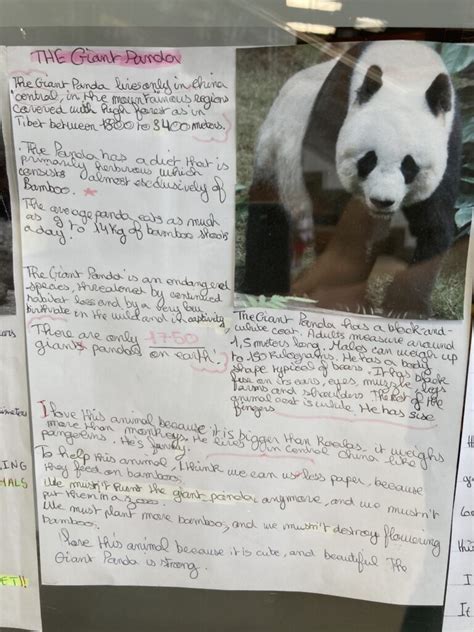 THE Giant Panda
The Giant Panda lives only in china
central, in the mountainous regions
covered with high forest as in
Tibet between 1800 to 3400 meters.
The Panda has a diet that is
primarily herbivorous which
consists almost exclusively of
Bamboo.
The average panda eats as much
as 9 to 14 kg of bamboo shoots
a day!
The Giant Panda is an endangered
species, threatened by continued
habitat loss and by a very low
birthrate in the wild and in captivity.
There are only 1750
giant pandas on earth.
The Giant Panda has a black-and-
white coat. Adults measure around
1,5 meters long. Males can weigh up
to 150 kilograms. He has a body
shape typical of bears. It has black
fur on its ears, eyes, muzzle, legs
arms and shoulders. The rest of the
animal coat is white. He has six
fingers.
I love this animal because it is bigger than Koalas. it weighs
more than monkeys. He lives in central china like
pangolins. He's funny.
To help this animal, I think we can use less paper, because
they feed on bamboo.
We mustn't hunt the giant panda anymore, and we mustn't
put them in a zoo.
We must plant more bamboo, and we mustn't destroy flowering
bamboo.
I love this animal because it is cute, and beautiful The
Giant Panda is strong.